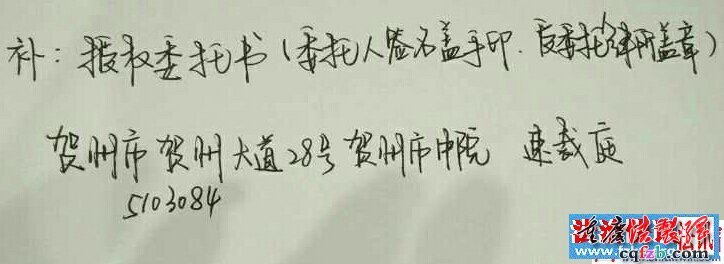 补：授权委托书（委托人签名盖手印．受委托律所盖章）
贺州市贺州大道28号贺州市中院 速裁庭
5103084
cqfzb.com